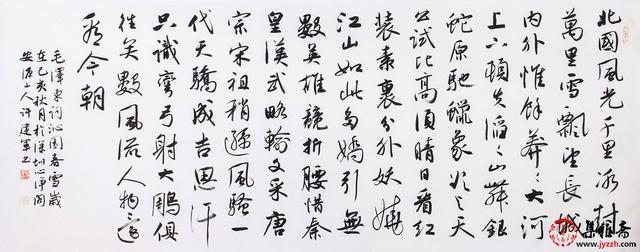 北國風光千里冰封
萬里雪飄望長城
内外惟餘莽々大河
上下頓失滔々山舞銀
蛇原馳蠟象欲与天
公試比高須晴日看紅
裝素裹分外妖嬈
江山如此多嬌引無
數英雄競折腰惜秦
皇漢武略輸文采唐
宗宋祖稍遜風騷一
代天驕成吉思汗
只識彎弓射大雕俱
往矣數風流人物還
看今朝
毛澤東詞沁園春雪歲
在己亥秋月於深圳心净閣
山人許建軍書
www.jyzzh.com